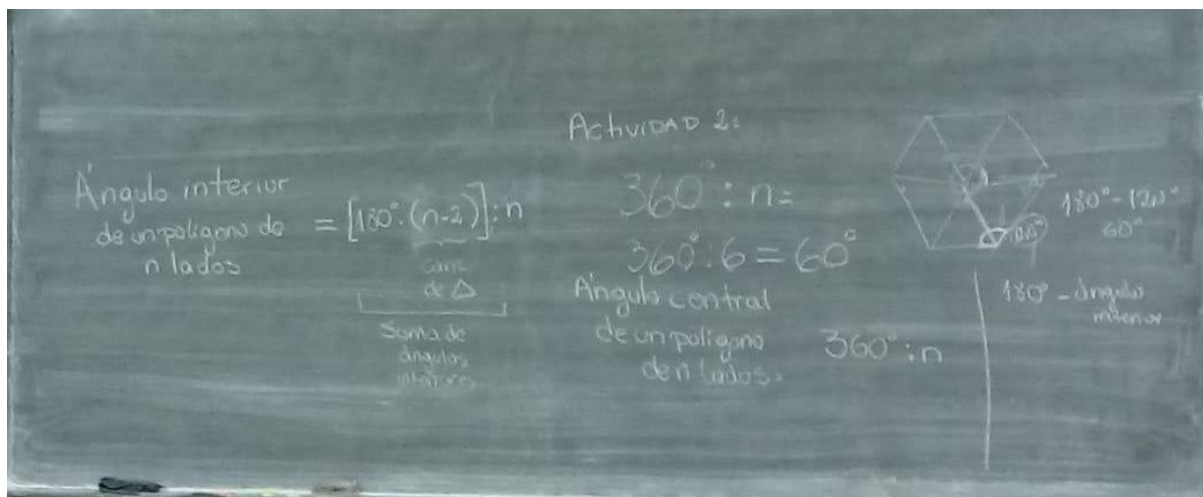 Ángulo interior
de un poligono de
n lados
= [180°.(n-2)]:n
de Δ
Suma de
ángulos
interiores
Actividad 2:
360° : n =
360° : 6 = 60°
Ángulo central
de un poligono
de n lados:
360° : n
180° - 120°
60°
180° - ángulo
interior